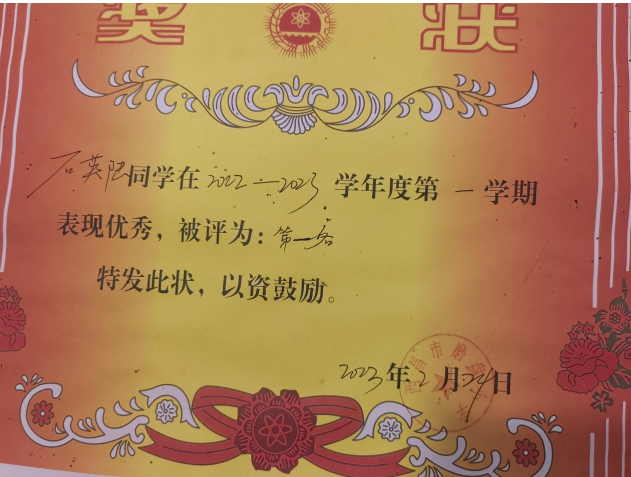 奖状
石英阳同学在2022—2023学年度第一学期
表现优秀，被评为：第一名
特发此状，以资鼓励。
2023年2月24日